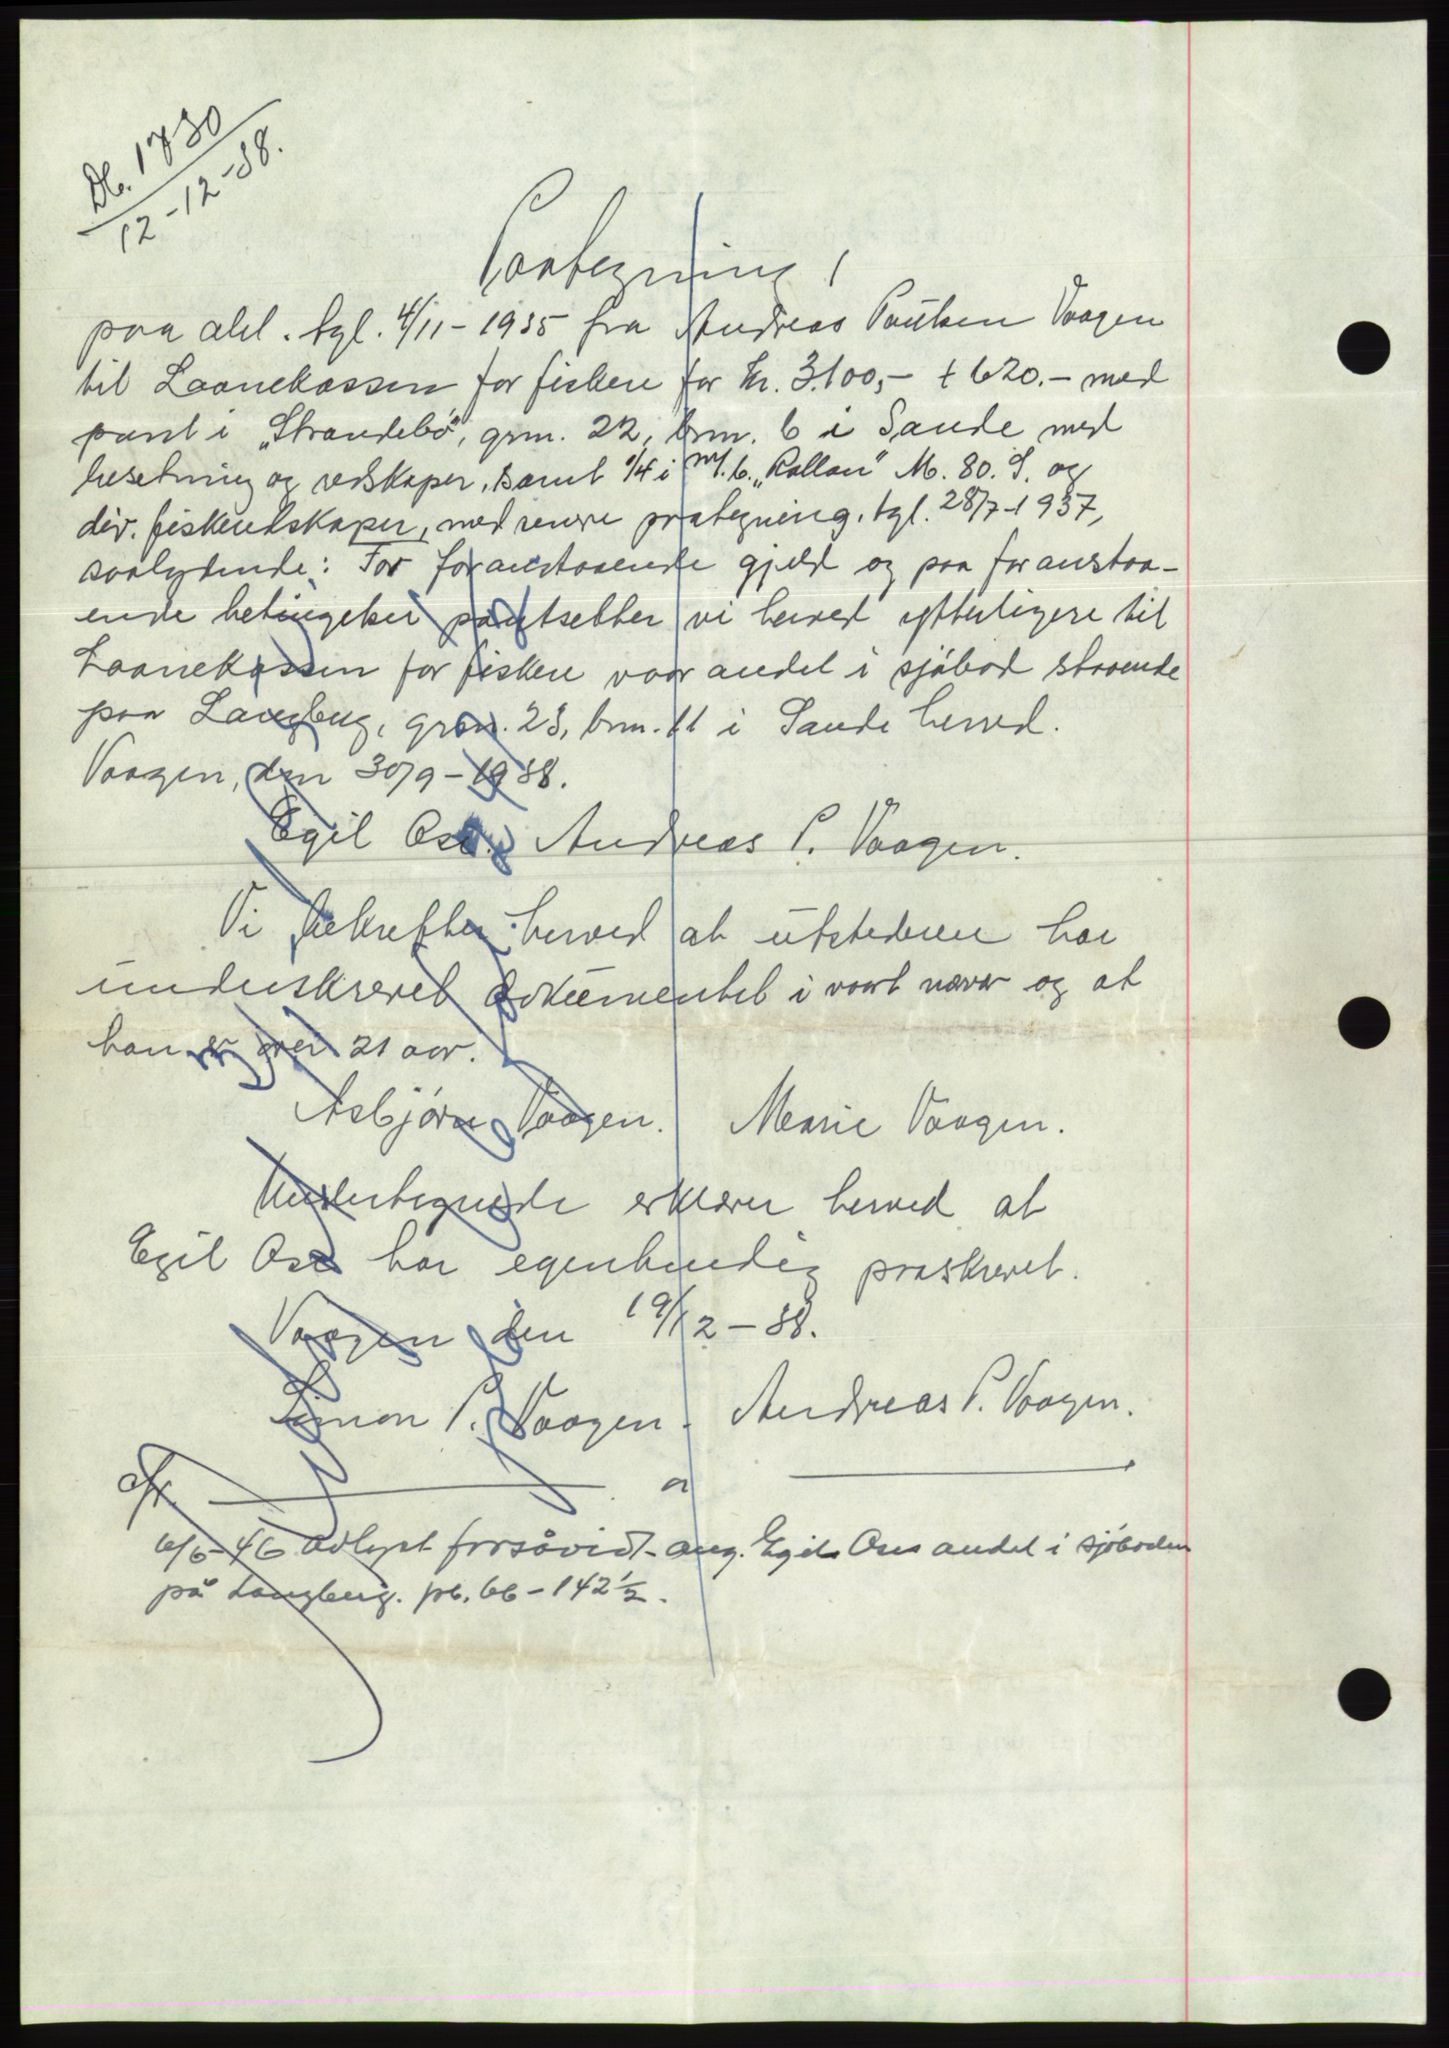 Db. 1730
12-12-38.
Paategning!
paa obl. tgl. 4/11-1935 fra Andreas Paulsen Vaagen
til Laanekassen for fiskere for kr. 3.100,- + 620.- med
pant i „Strandebö", grm. 22, brm. 6 i Sande med
besetning og redskaper, samt 1/4 i m/.b. „Rollon" M. 80. S. og
div. fiskeredskaper, med senere paategning, tgl. 28/7-1937,
saalydende: For foranstaaende gjeld og paa foranstaa-
ende betingelser pantsetter vi herved ytterligere til
Laanekassen for fiskere vaar andel i sjöbod staaende
paa Langberg, grm. 23, brm. 11 i Sande herred.
Vaagen, den 30/9-1938.
Egil Ose. Andreas P. Vaagen.
Vi bekrefter herved at utstederen har
underskrevet dokumentet i vaart nærvær og at
han er over 21 aar.
Asbjörn Vaagen. Marie Vaagen.
Undertegnede erklærer herved at
Egil Ose har egenhendig paaskrevet.
Vaagen den 19/12-38.
Simon P. Vaagen. Andreas P. Vaagen.
6/6-46 Avlyst forsåvidt ang. Egil Oses andel i sjöboden
på Langberg. pb. 66-142½.